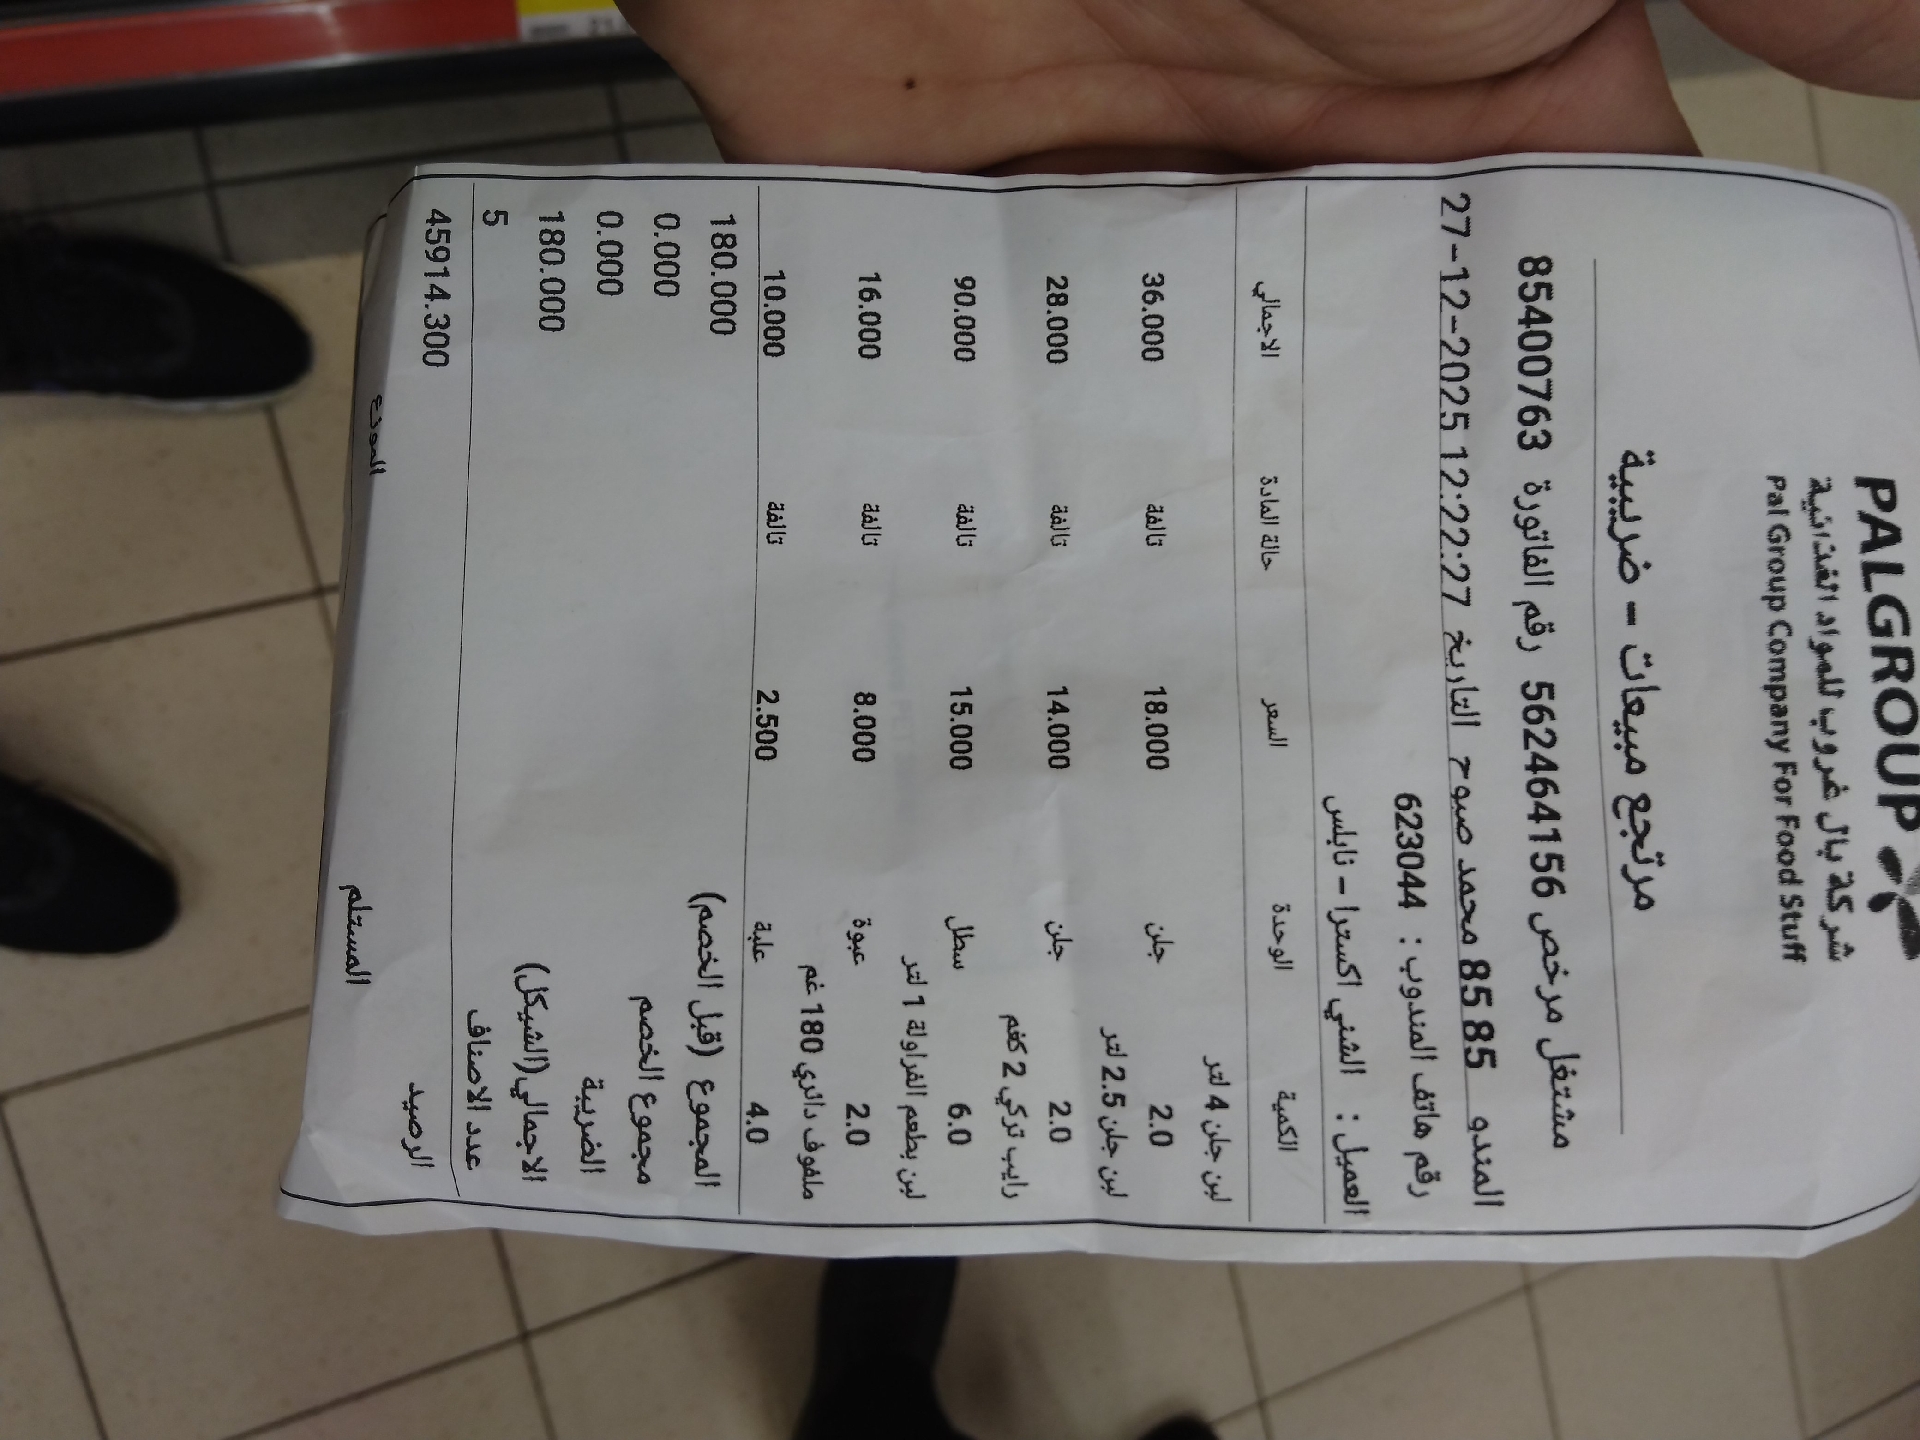 PALGROUP
شركة بال غروب للمواد الغذائية
Pal Group Company For Food Stuff
مرتجع مبيعات - ضريبية
مشتغل مرخص 562464156 رقم الفاتورة 85400763
المندو 85 85 محمد صبوح التاريخ 27-12-2025 12:22:27
رقم هاتف المندوب : 623044
العميل : الشني اكسترا - نابلس
الكمية الوحدة السعر حالة المادة الاجمالي
لبن جلن 4 لتر
2.0 جلن 18.000 تالفة 36.000
لبن جلن 2.5 لتر
2.0 جلن 14.000 تالفة 28.000
رايب تركي 2 كغم
6.0 سطل 15.000 تالفة 90.000
لبن بطعم الفراولة 1 لتر
2.0 عبوة 8.000 تالفة 16.000
ملفوف دائري 180 غم
4.0 علبة 2.500 تالفة 10.000
المجموع (قبل الخصم) 180.000
مجموع الخصم 0.000
الضريبة 0.000
الاجمالي(الشيكل) 180.000
عدد الاصناف 5
الرصيد 45914.300
المستلم الموزع